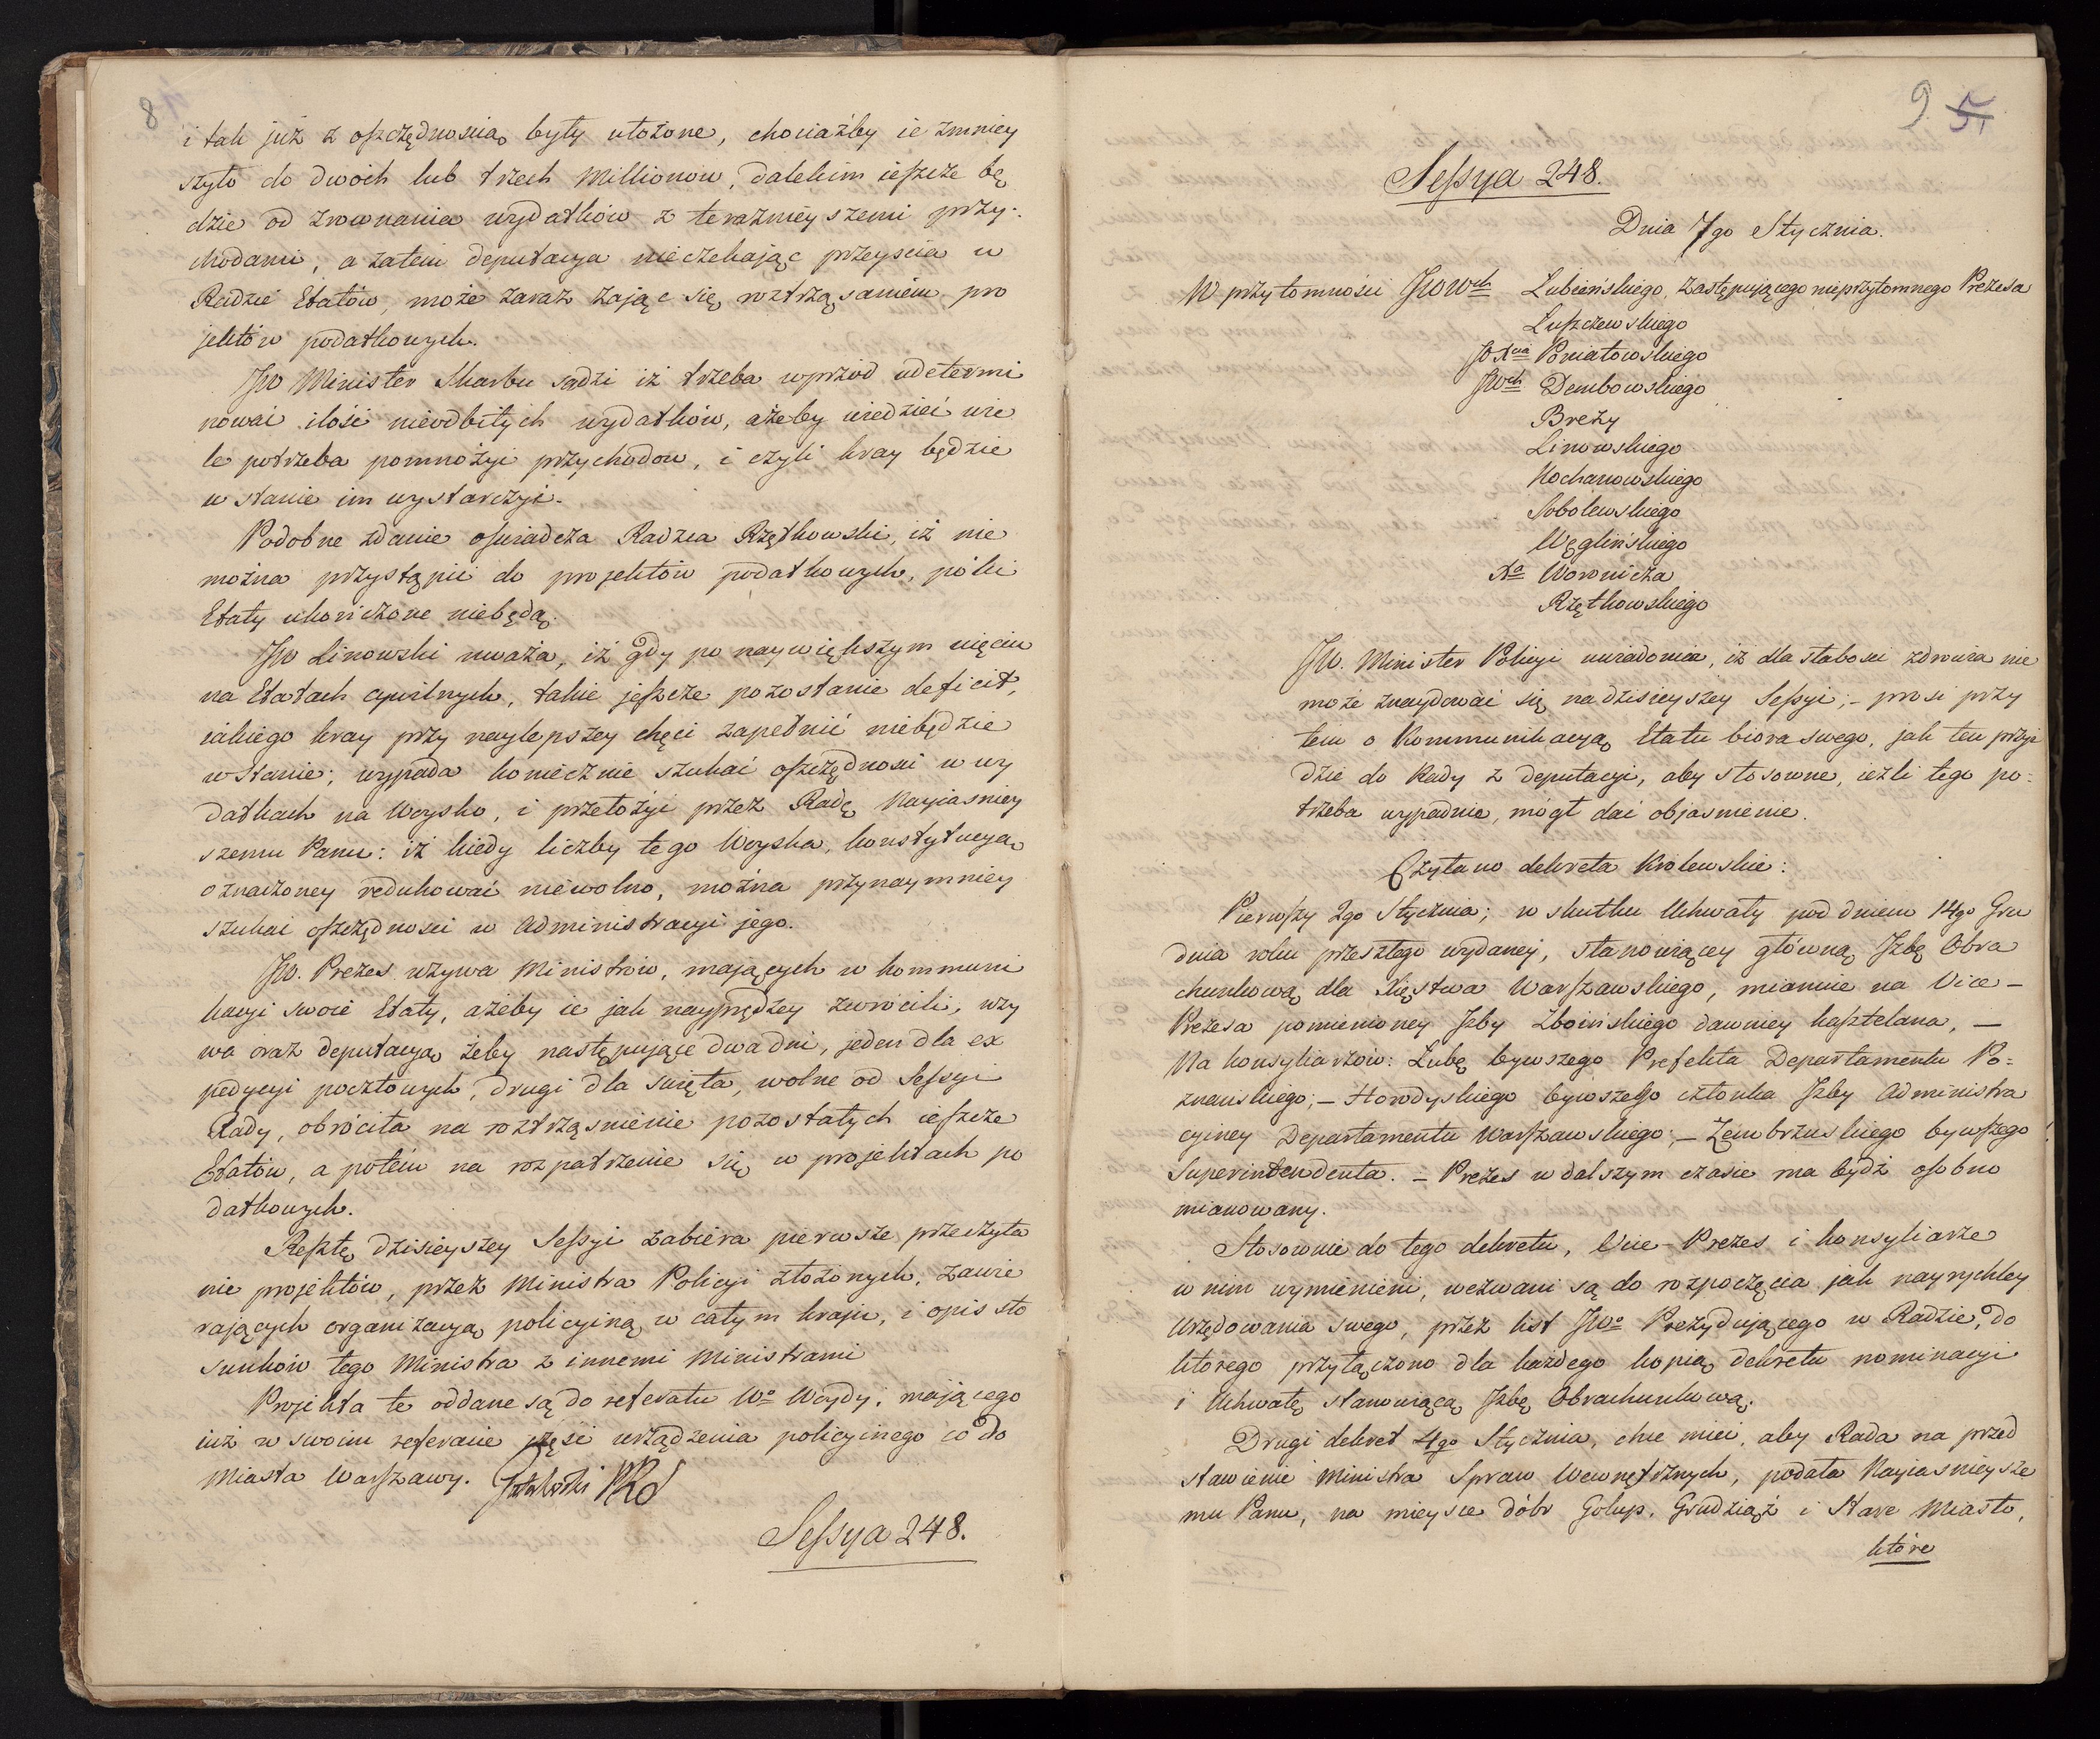 8
i tak już z oszczędnością były ułożone, chociażby ie zmniey
szyło do dwoch lub trzech Millionow, dalekim ieszcze bę
dzie od zrownania wydatków z teraźnieyszemi przy-
chodami, a zatem deputacya nieczekając przeyscia w
Radzie Etatów, może zaraz zająć się roztrząsaniem pro
jektów podatkowych.
JW Minister Skarbu sądzi iż trzeba wprzód udetermi
nować ilość nieodbitych wydatków, ażeby wiedzieć wie
le potrzeba pomnożyć przychodow, i czyli kray będzie
w stanie im wystarczyć.
Podobne zdanie oświadcza Radzca Rzętkowski, iż nie
można przystąpić do projektów podatkowych, póki
Etaty ukończone niebędą.
JW Linowski uważa, iż gdy po naywiększym cięciu
na Etatach cywilnych, takie jeszcze pozostanie deficit,
iakiego kray przy naylepszey chęci zapełnić niebędzie
w stanie; wypada koniecznie szukać oszczędnosci w wy
datkach na Woysko, i przełożyć przez Radę Nayiasniey
szemu Panu: iż kiedy liczby tego Woyska, konstytucyą
oznaczoney redukować niewolno, można przynaymniey
szukać oszczędnosci w Administracyi jego.
JW. Prezes wzywa Ministrów, mających w kommuni
kacyi swoie Etaty, ażeby ie jak nayprędzey zwrócili, wzy
wa oraz deputacyą żeby następujące dwa dni, jeden dla ex
pedycyi pocztowych, drugi dla święta, wolne od Sessyi
Rady, obróciła na roztrząśnienie pozostałych ieszcze
Etatów, a potem na rozpatrzenie się w projektach po
datkowych.
Resztę dzisieyszey Sessyi zabiera pierwsze przeczyta
nie projektów, przez Ministra Policyi złożonych, zawie
rających organizacyą policyiną w całym kraju, i opis sto
sunków tego Ministra z innemi Ministrami
Projekta te oddane są do referatu Wo Woydy, mającego
iuż w swoim referacie część urządzenia policyinego co do
Miasta Warszawy.
Sessya 248.
9 5
Sessya 248.
Dnia 7go Stycznia.
W przytomności JWWch Lubieńskiego, zastępującego nieprzytomnego Prezesa
Łuszczewskiego
JOXcia Poniatowskiego
JWch Dembowskiego
Brezy
Linowskiego
Kochanowskiego
Sobolewskiego
Węglińskiego
Xa Woronicza
Rzętkowskiego
JW. Minister Policyi uwiadomia, iż dla słabości zdrowia nie
może znaydować się na dzisieyszey Sessyi; - prosi przy
tem o Kommunikacyą Etatu biora swego, jak ten przyi
dzie do Rady z deputacyi, aby stosowne, ieżli tego po-
trzeba wypadnie, mógł dać objasnienie.
Czytano dekreta Krolewskie:
Pierwszy 2go Stycznia; w skutku Uchwały pod dniem 14go Gru
dnia roku przeszłego wydaney, stanowiącey główną Izbę Obra
chunkową dla Xięstwa Warszawskiego, mianuie na Vice-
Prezesa pomienioney Izby Zboińskiego dawniey kasztelana, -
Na konsyliarzów: Lubę bywszego Prefekta Departamentu Po-
znańskiego; - Horodyskiego bywszego członka Izby Administra
cyiney Departamentu Warszawskiego; - Zembrzuskiego bywszego
Superintendenta. - Prezes w dalszym czasie ma bydź osobno
mianowany.
Stosownie do tego dekretu, Vice-Prezes i konsyliarze
w nim wymienieni, wezwani są do rozpoczęcia jak nayrychley
Urzędowania swego, przez list JWo Prezydującego w Radzie, do
ktorego przyłączono dla każdego kopią dekretu nominacyi
i Uchwałę stanowiącą Izbę Obrachunkową.
Drugi dekret 4go Stycznia, chce mieć, aby Rada na przed
stawienie Ministra Spraw Wewnętrznych, podała Nayiasnieysze
mu Panu, na mieysce dóbr Golup, Grudziąż i Stare Miasto,
które